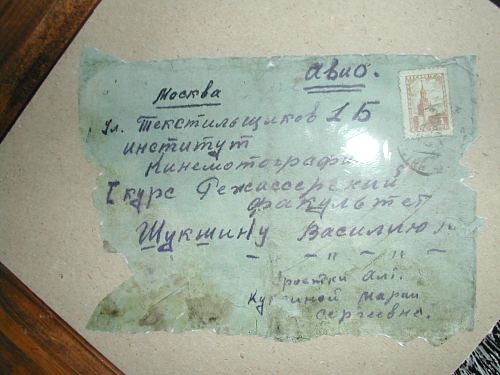 Авио.
Москва
Ул. Текстильщиков 1Б
институт
Кинемотографии
I курс Режиссерский
факультет
Шукшину Василию
– – " – " – " –
Сростки Алт.
Куксиной Марии
Сергеевне.